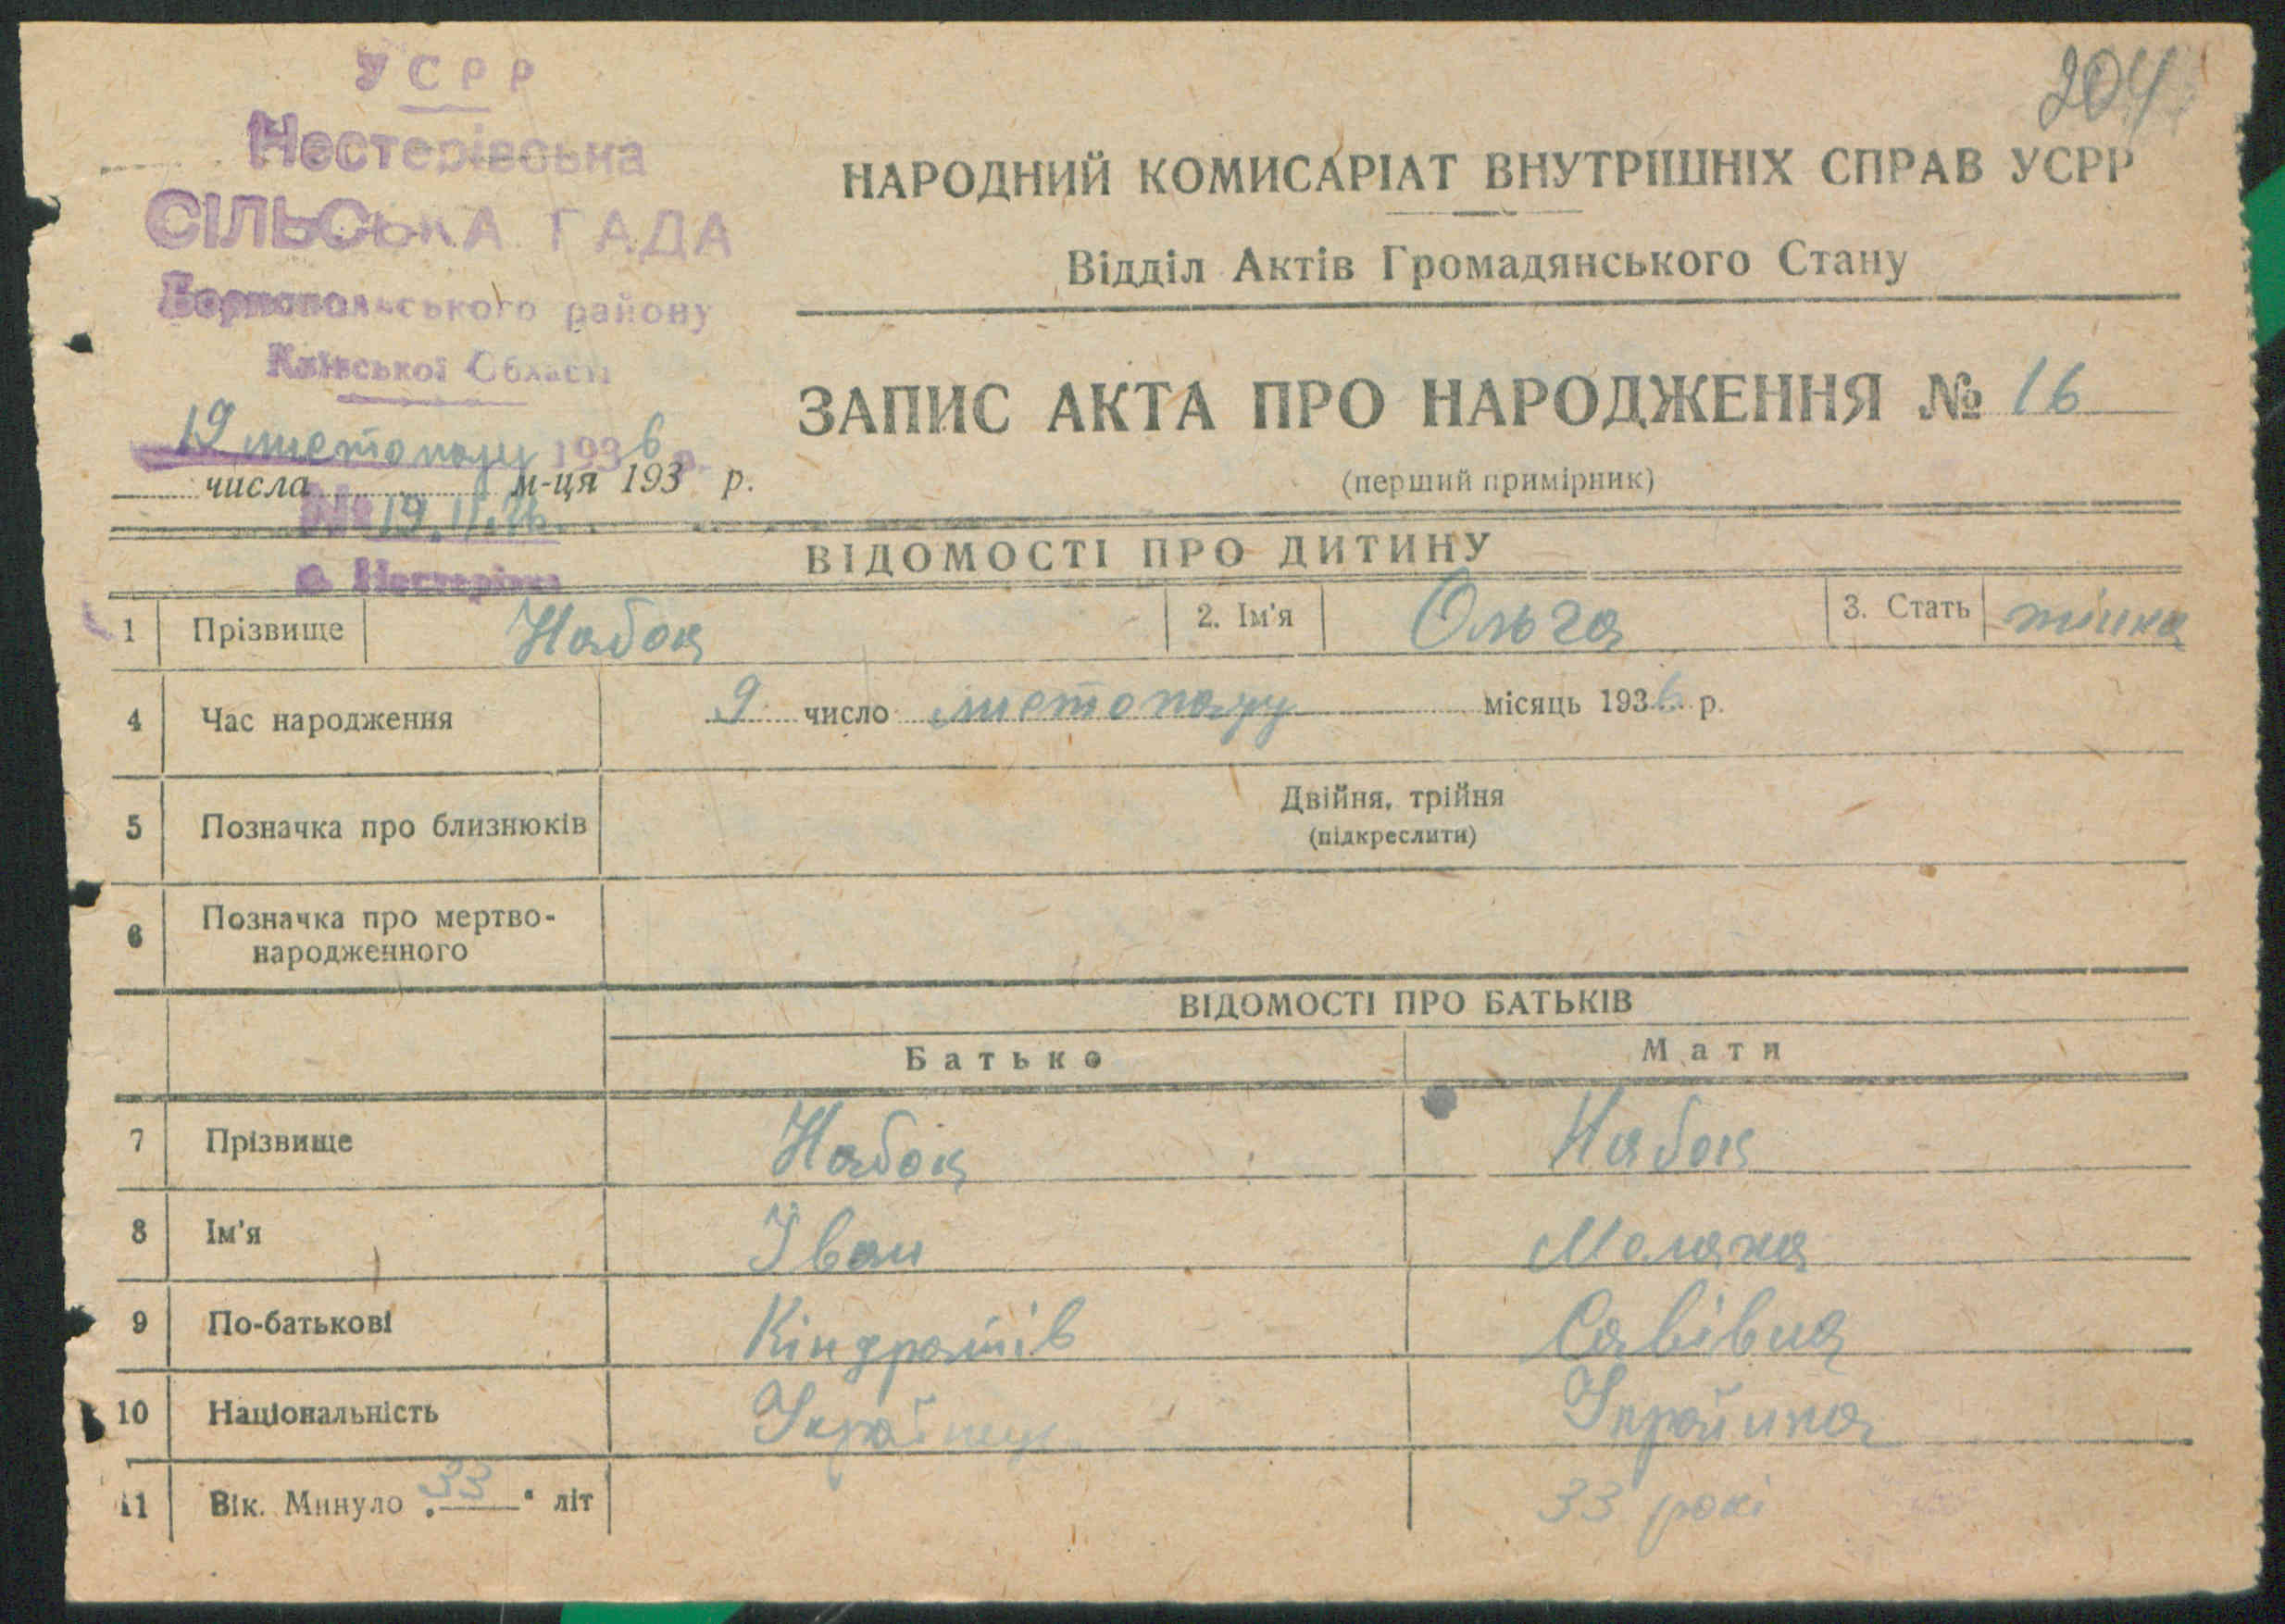 204
УСРР
Нестерівська
СІЛЬСЬКА РАДА
району
Київської Області
19 листопаду 1936 р.
числа м-ця 193 р.
№ 19.11.36
с. Нестерівка
НАРОДНИЙ КОМИСАРІАТ ВНУТРІШНІХ СПРАВ УСРР
Відділ Актів Громадянського Стану
ЗАПИС АКТА ПРО НАРОДЖЕННЯ № 16
(перший примірник)
ВІДОМОСТІ ПРО ДИТИНУ
1 Прізвище Набок 2. Ім'я Ольга 3. Стать жінка
4 Час народження 9 число листопаду місяць 1936 р.
5 Позначка про близнюків Двійня, трійня
(підкреслити)
6 Позначка про мертво-
народженного
ВІДОМОСТІ ПРО БАТЬКІВ
Батько Мати
7 Прізвище Набок Набок
8 Ім'я Іван Мелана
9 По-батькові Кіндратів Савівна
10 Національність Українка
11 Вік. Минуло 33 літ 33 рокі